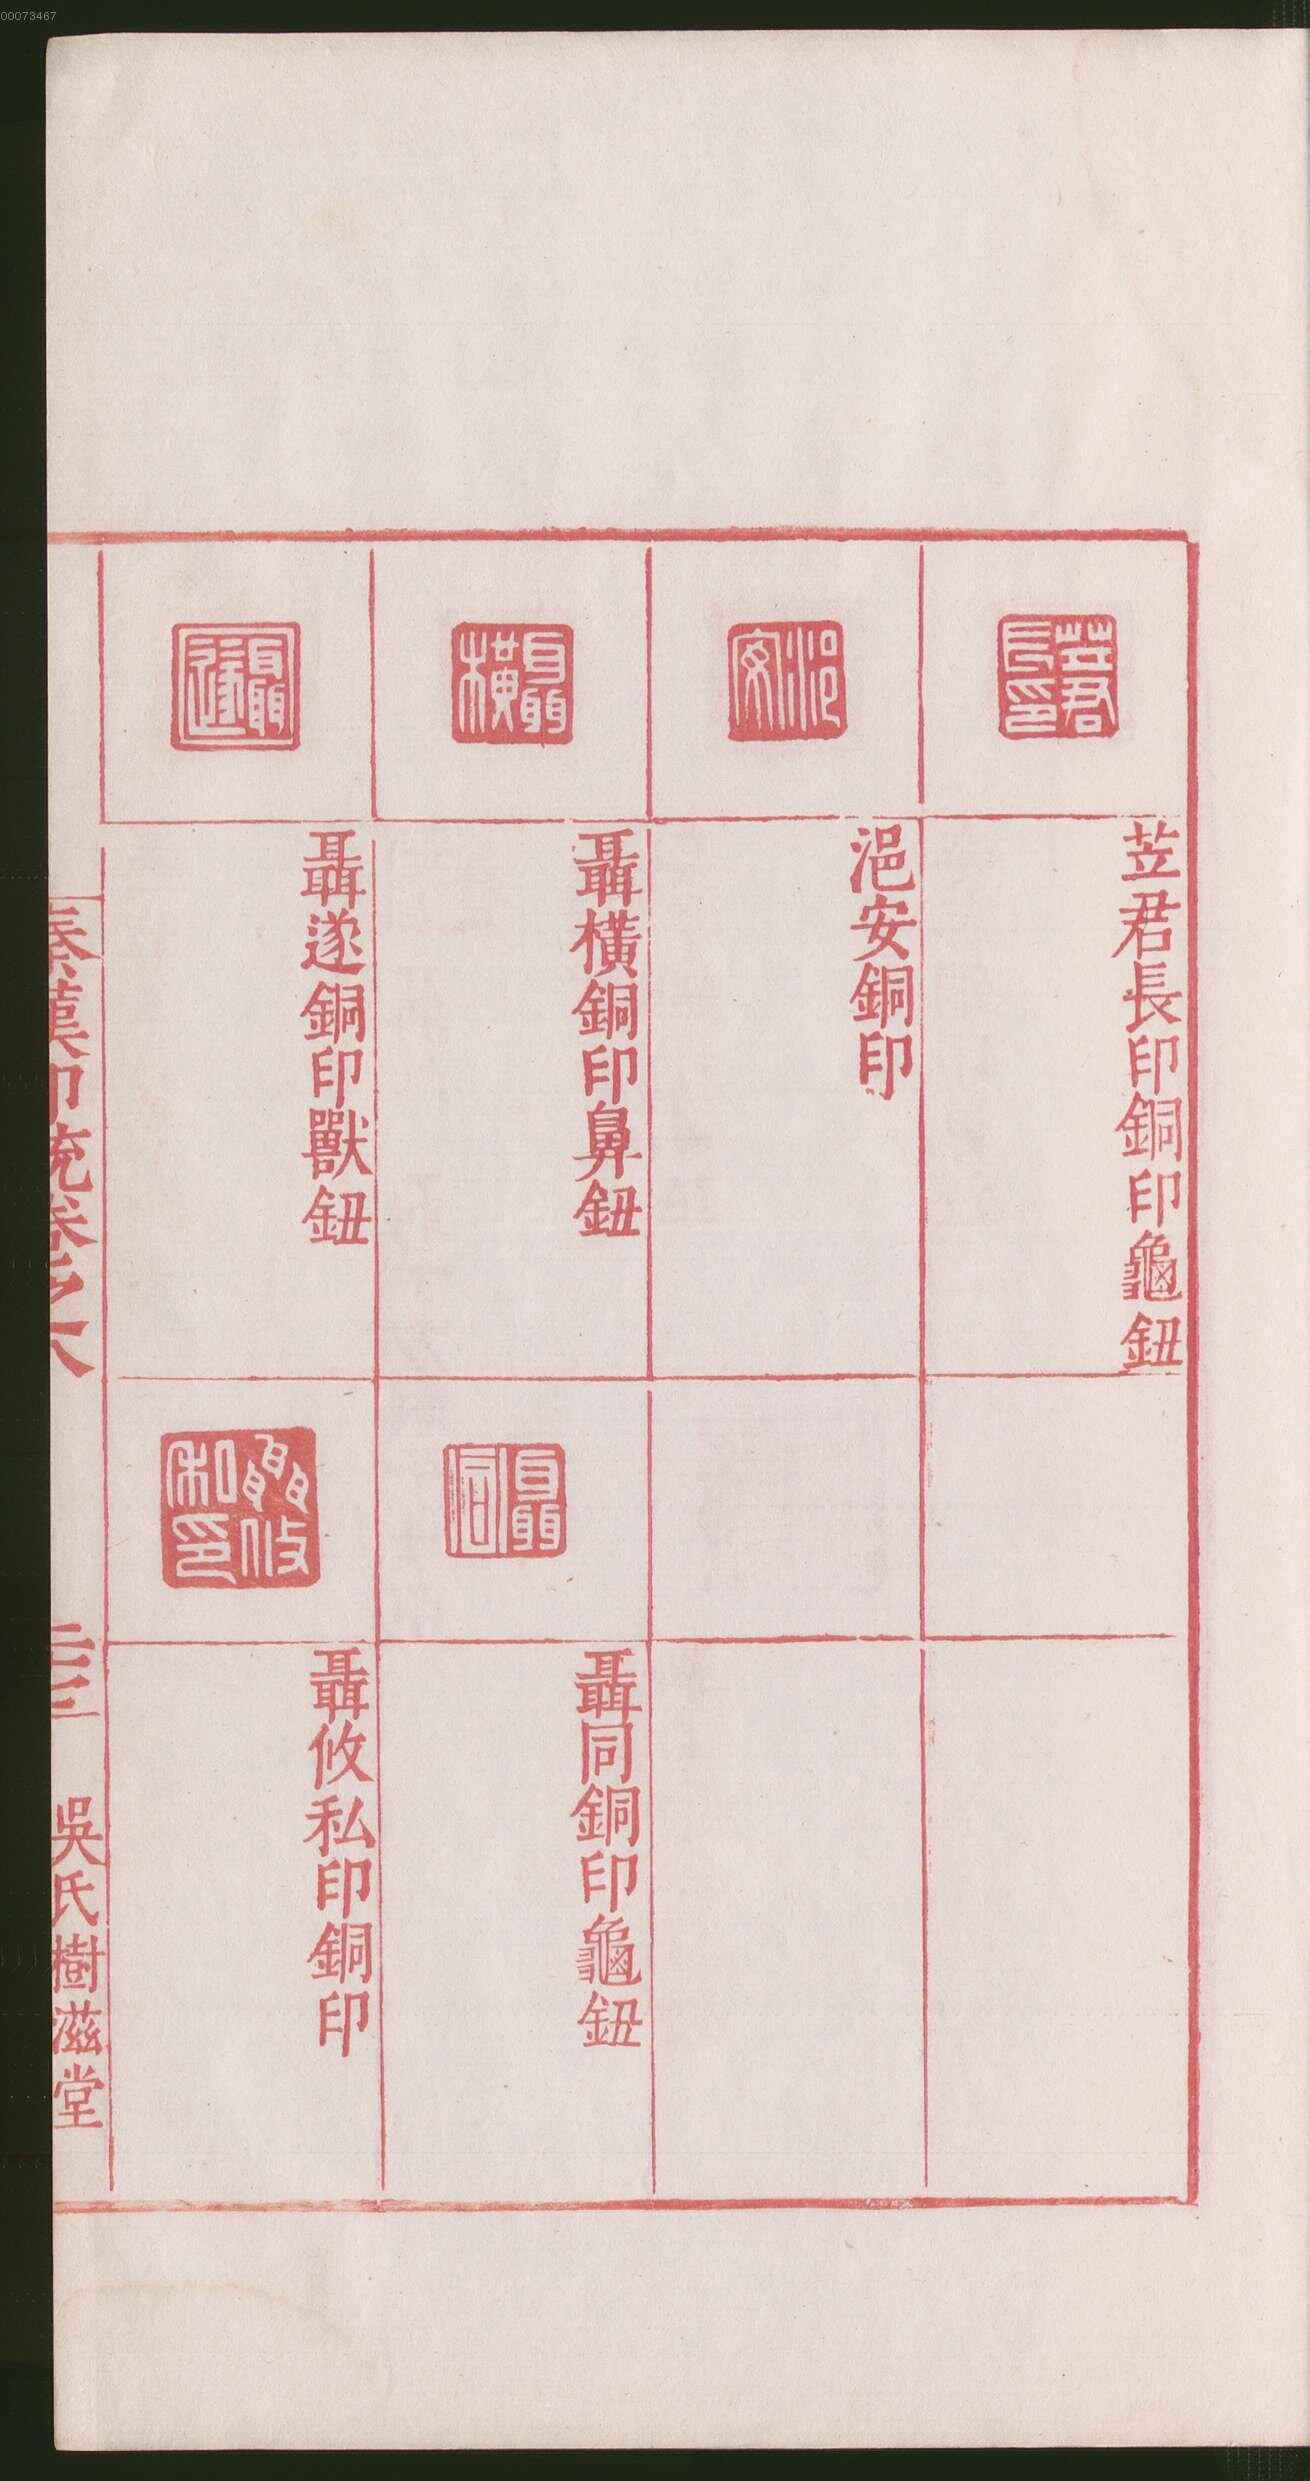 00073467
苙君長印銅印龜鈕
浥安銅印
聶橫銅印鼻鈕
聶同銅印龜鈕
聶遂銅印獸鈕
聶攸私印銅印
秦漢印統卷之八
二十三
吳氏樹滋堂